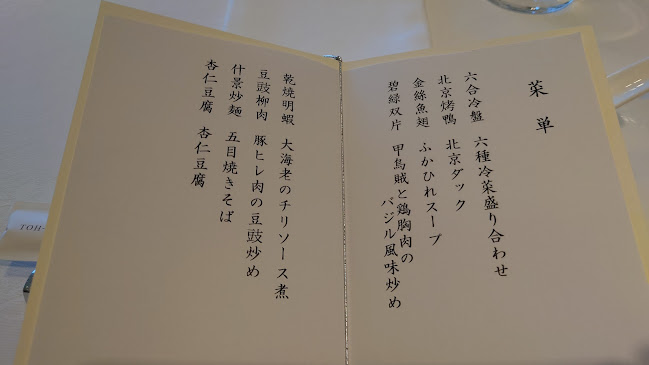 菜単
六合冷盤 六種冷菜盛り合わせ
北京烤鴨 北京ダック
金絲魚翅 ふかひれスープ
碧緑双片 甲烏賊と鶏胸肉の
バジル風味炒め
乾焼明蝦 大海老のチリソース煮
豆豉柳肉 豚ヒレ肉の豆豉炒め
什景炒麺 五目焼きそば
杏仁豆腐 杏仁豆腐
TOH-